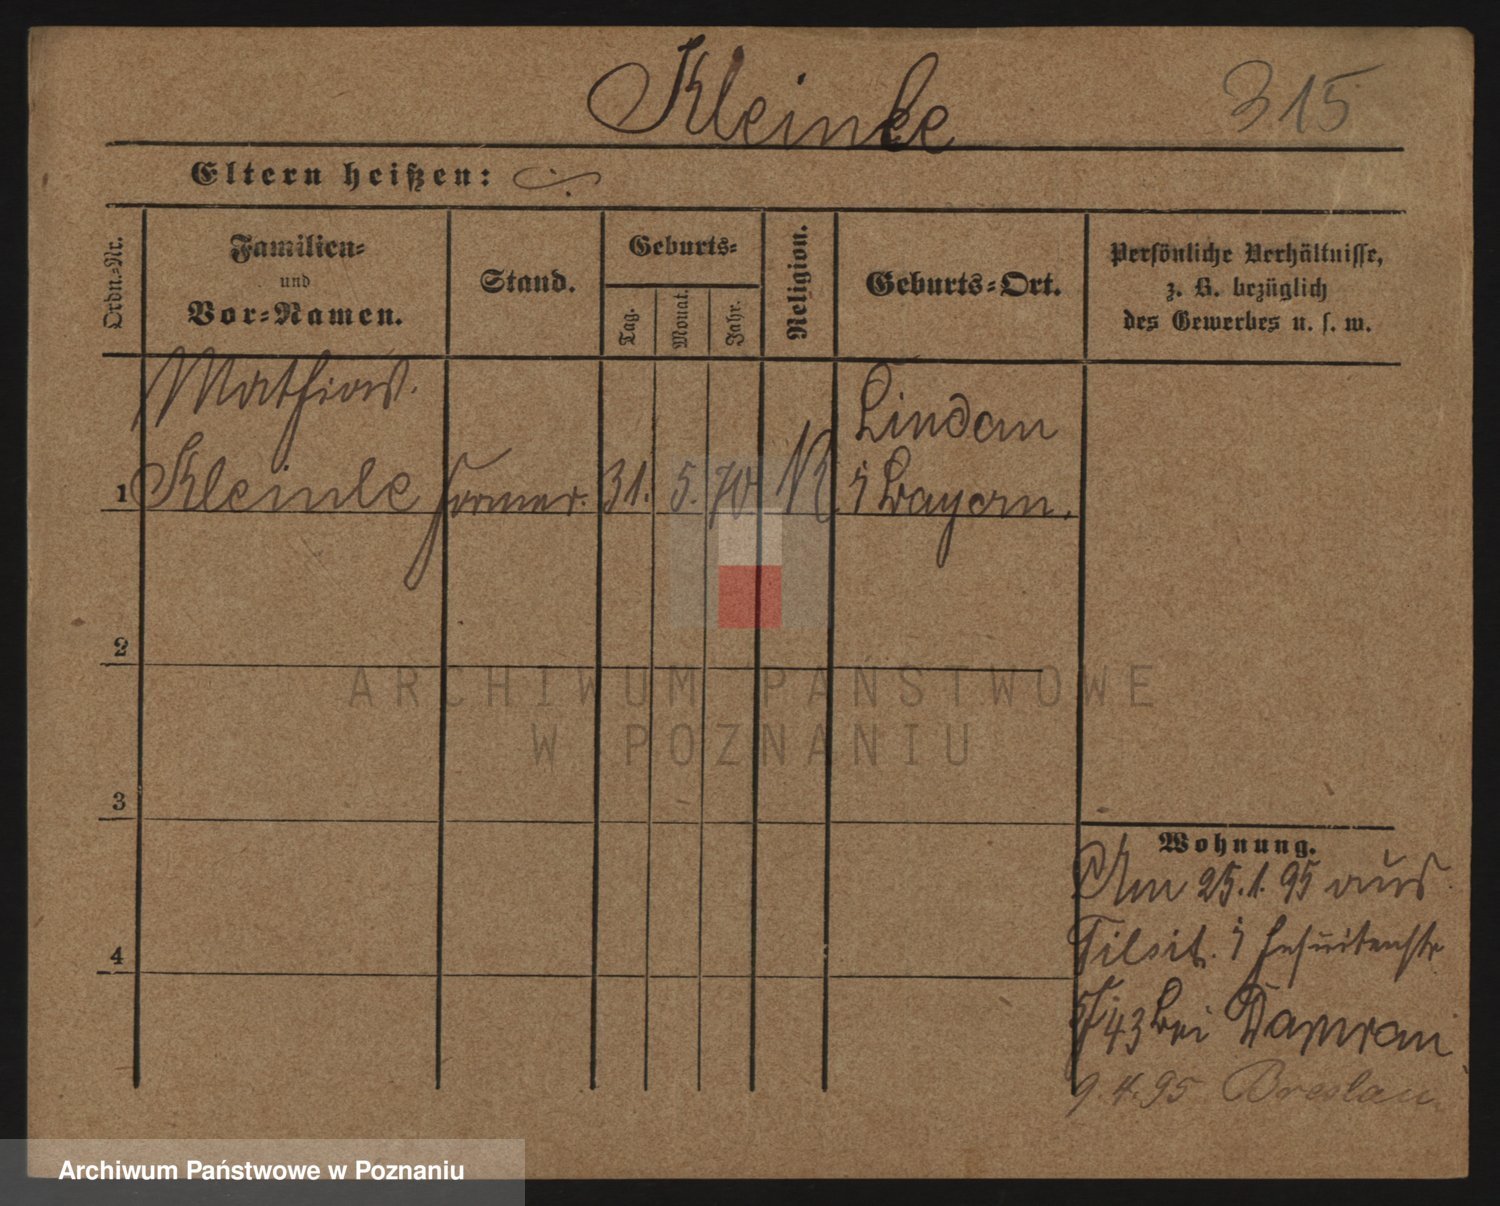 Kleinle
315
Eltern heißen:
Ordn.=Nr.
Familien=
und
Vor=Namen.
Stand.
Geburts=
Tag.
Monat.
Jahr.
Religion.
Geburts=Ort.
Persönliche Verhältnisse,
z. B. bezüglich
des Gewerbes u. s. w.
Mathias
Lindau
1 Kleinle Former. 31. 5. 70 K. i Bayern.
2
ARCHIWUM PAŃSTWOWE
W POZNANIU
3
Wohnung.
Am 25.1.95 aus
Tilsit. i
4
43 bei
9.4.95 Breslau.
Archiwum Państwowe w Poznaniu